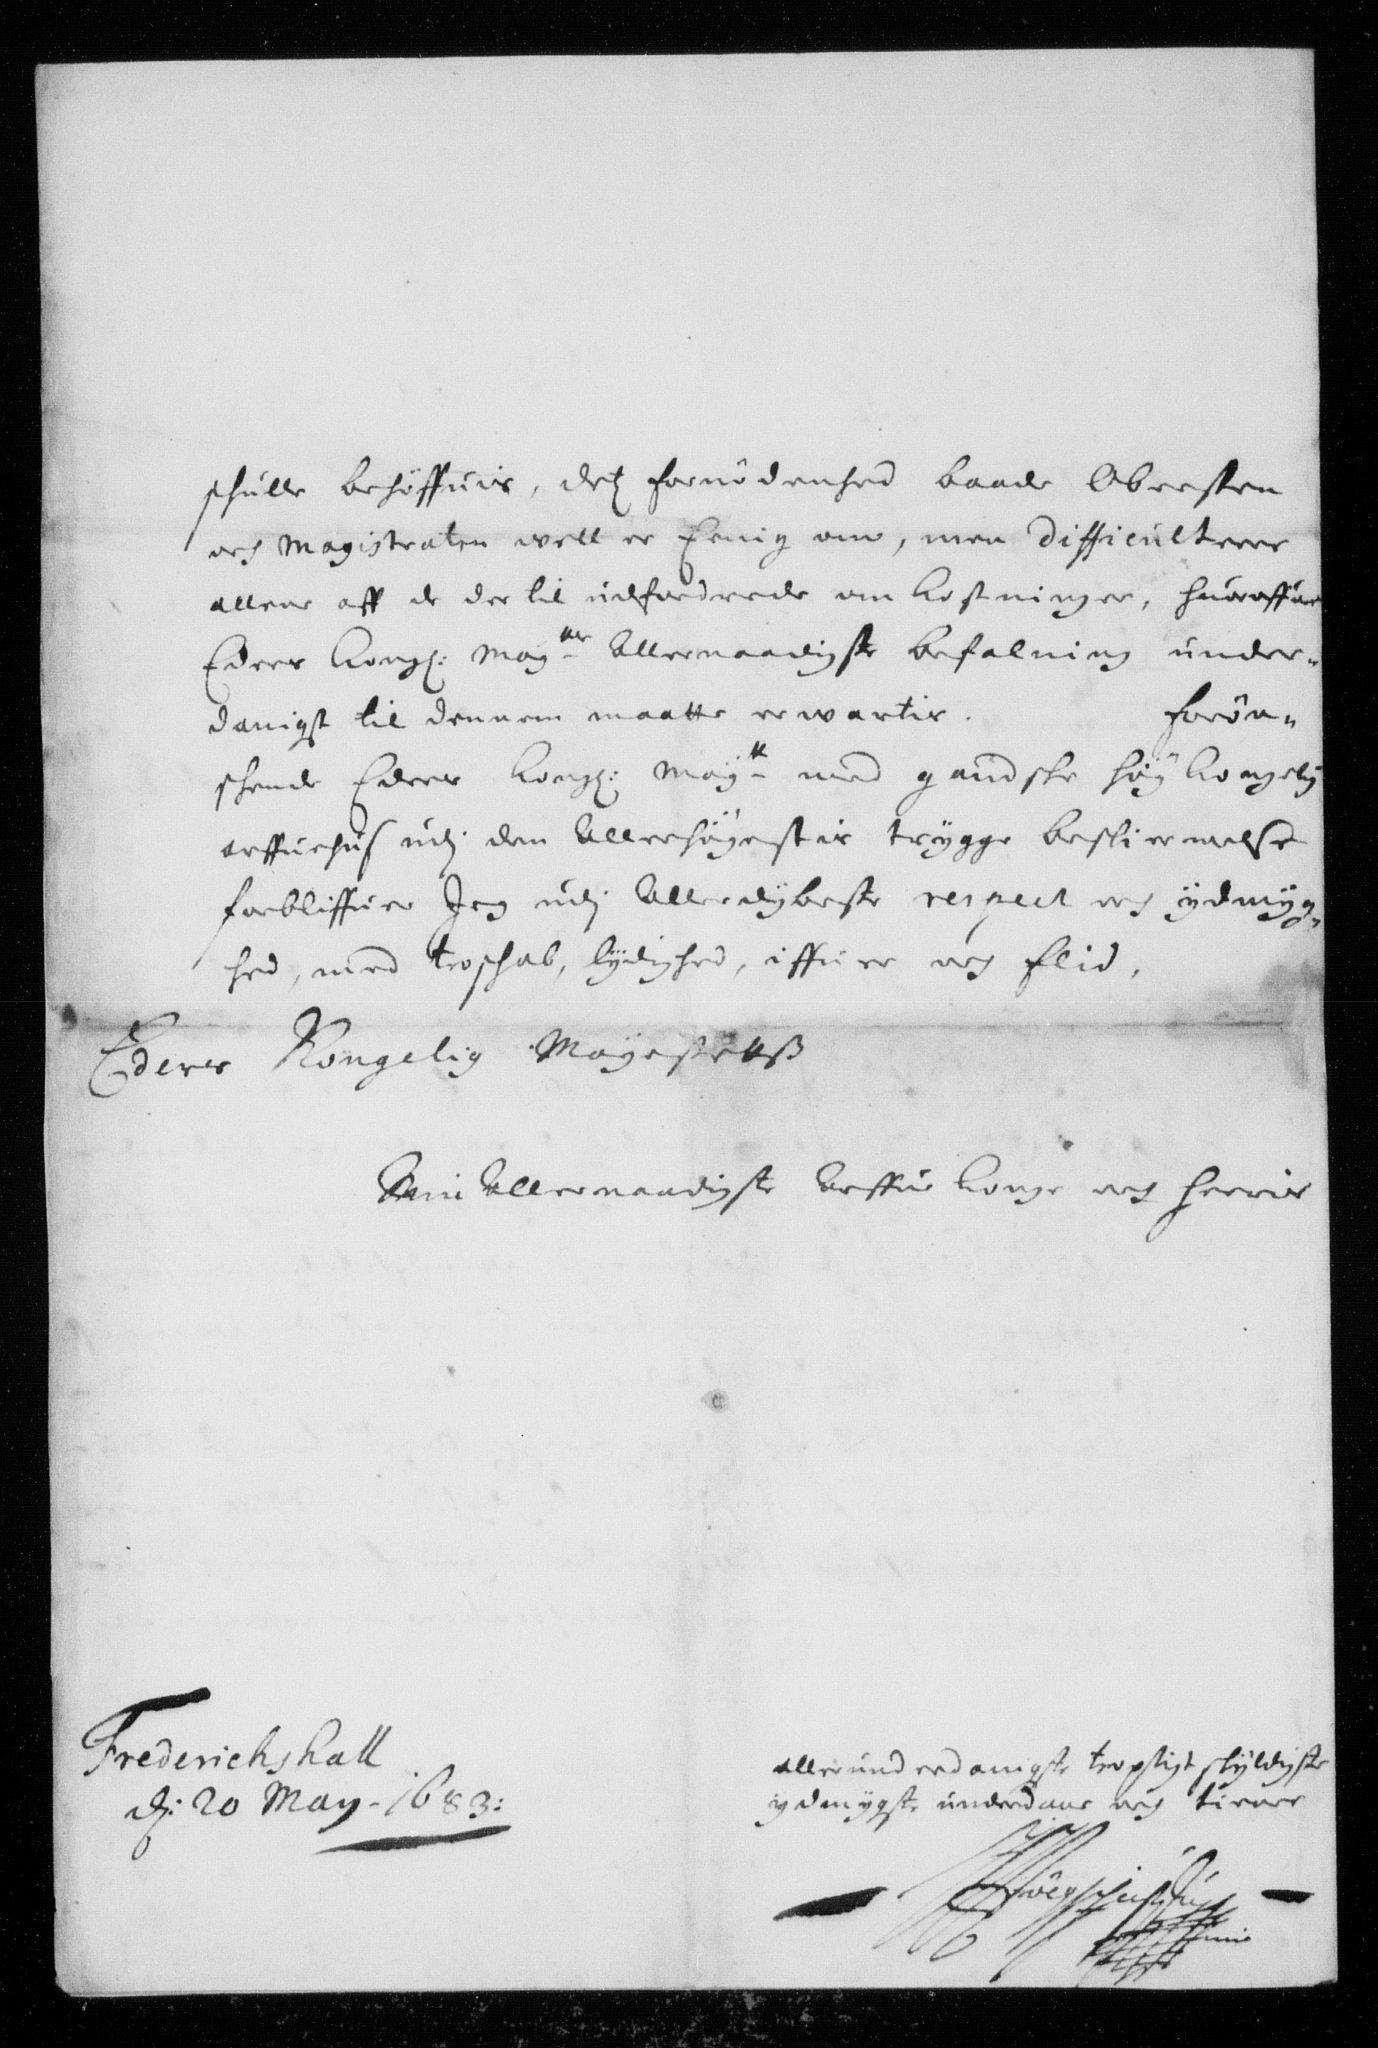 schulle behöffuis, detz fornödenhed baade Obersten
och Magistraten well er Eenig om, men difficulterer
allene aff de der til udfordrede om kostninger, huoroffuer
Eders Kongl: May.ts Allernaadigste befalning under-
danigst til dennem maatte erwartis. Forön-
schende Eders Kongl: May.tt med gandske höy Kongelig
arffuehus udj den Allerhöyestis trygge beskiermelse
forbliffuer Jeg udj Allerdybeste respect och ydmyg-
hed, med troschab, lydighed, iffuer och flid,
Eders Kongelig Mayestettß
Min Allernaadigste Arffue Konge och Herris
Frederichshall
dj: 20 May. 1683:
allerunderdanigste tropligt skyldigste
ydmygste underdaner och tiener